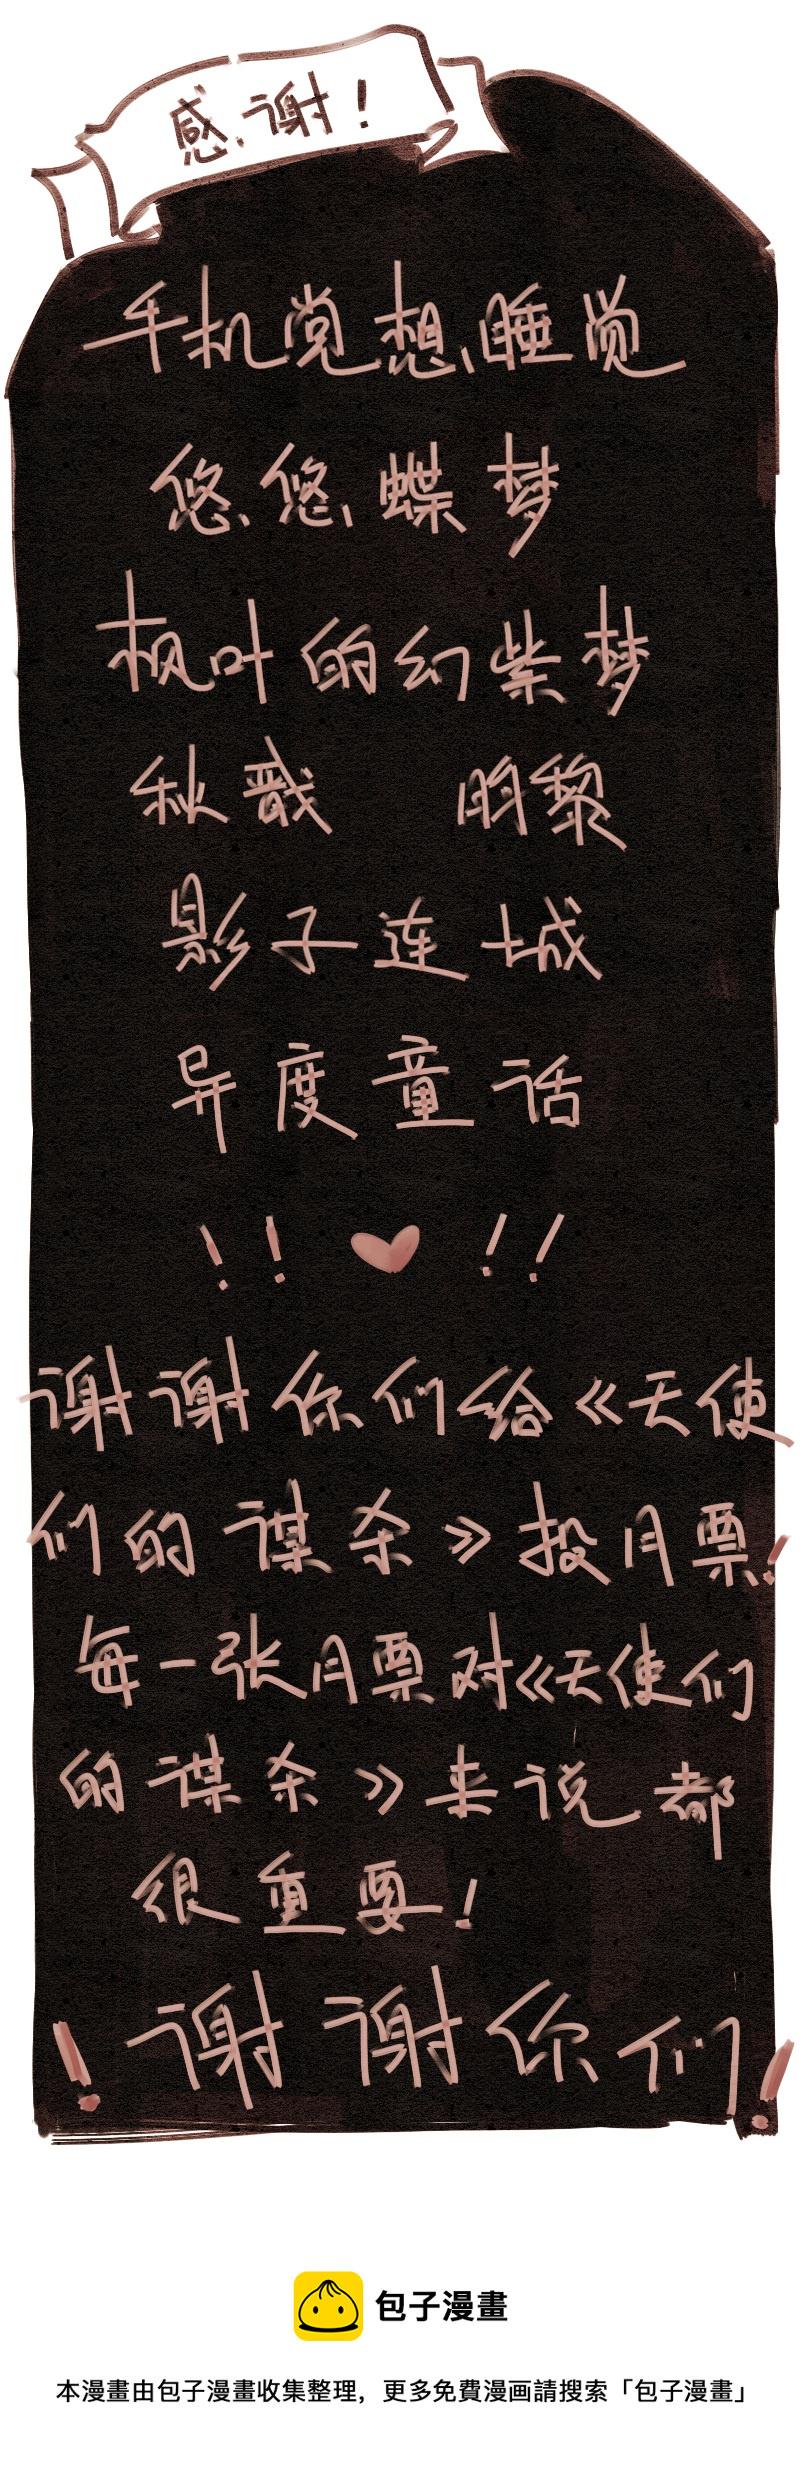 感谢！
手机党想睡觉
悠悠蝶梦
枫叶的幻紫梦
秋戬 阴黎
影子连城
异度童话
！！ ！！
谢谢你们给《天使
们的谋杀》投月票！
每一张月票对《天使们
的谋杀》来说都
很重要！
！谢谢你们！
包子漫畫
本漫畫由包子漫畫收集整理，更多免費漫画請搜索「包子漫畫」